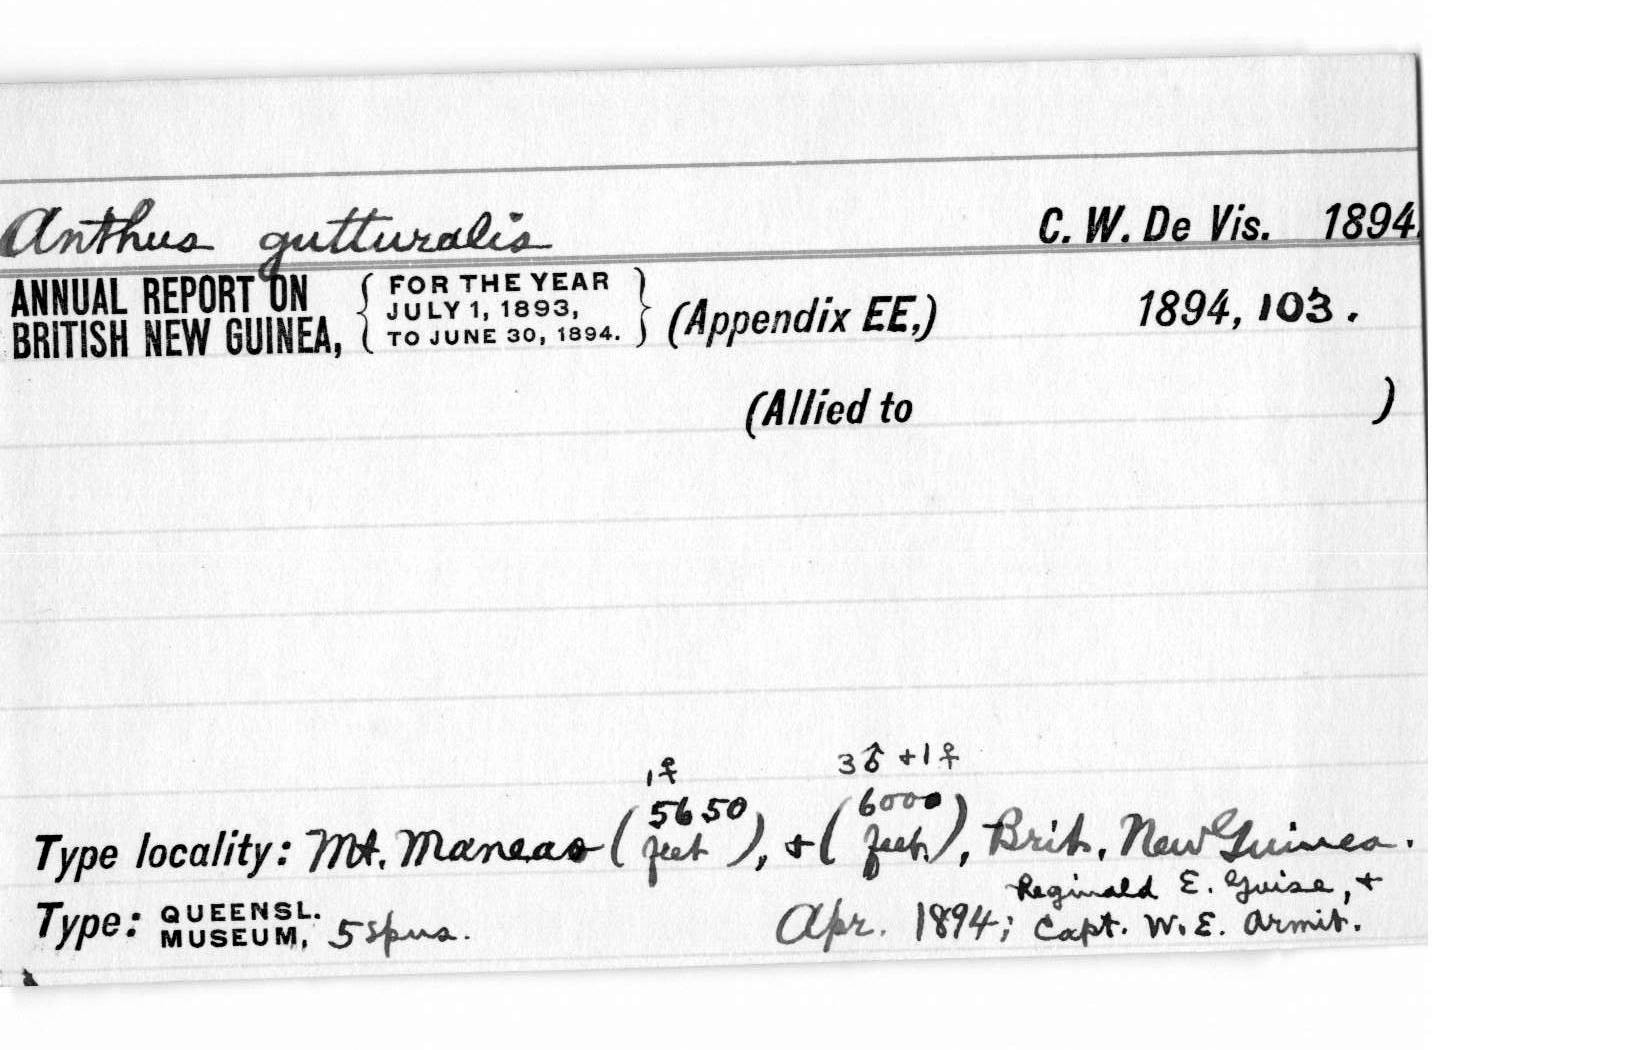 Anthus gutturalis C. W. De Vis. 1894.
ANNUAL REPORT ON BRITISH NEW GUINEA, { FOR THE YEAR JULY 1, 1893, TO JUNE 30, 1894. } (Appendix EE,) 1894, 103.
(Allied to )
1♀ 3♂ + 1♀
Type locality: Mt. Maneao (5650 feet), + (6000 feet), Brit. New Guinea.
Reginald E. Guise, +
Type: QUEENSL. MUSEUM, 5 spns. Apr. 1894; Capt. W. E. Armit.